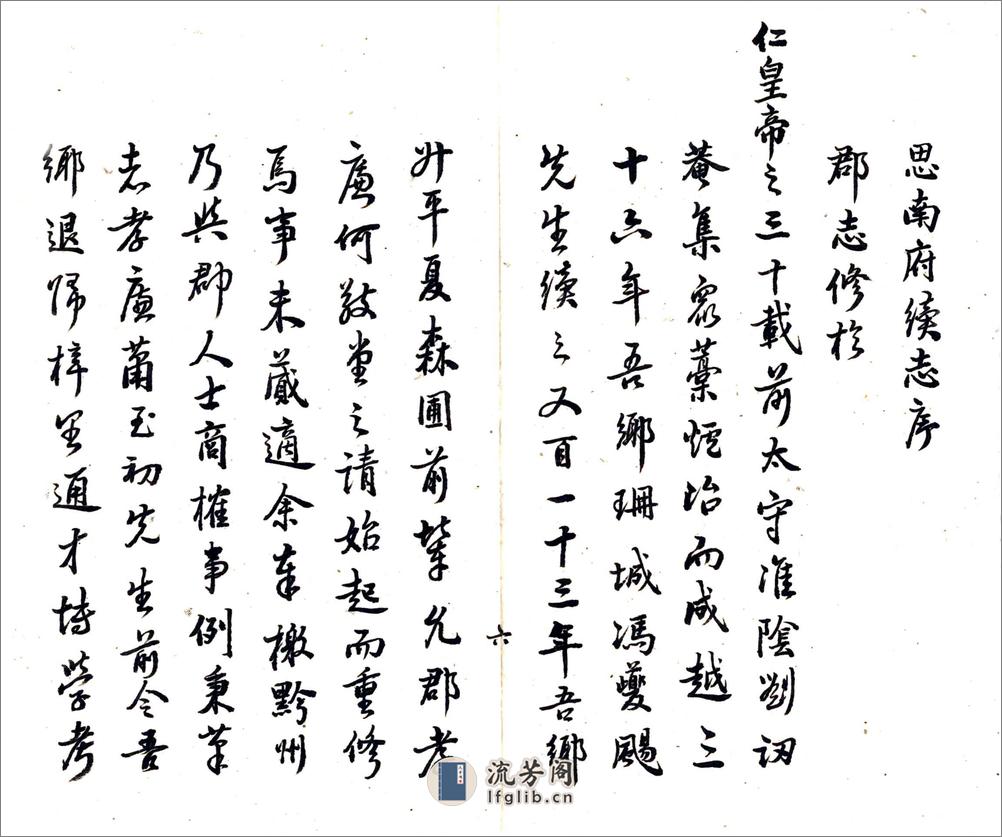 思南府續志序
郡志修於
仁皇帝之三十載前太守淮陰劉訒
菴集眾藁爐冶而成越三
十六年吾鄉珊城馮夔颺
先生續之又百一十三年吾鄉
六
升平夏森圃前輩允郡孝
廉何敬堂之請始起而重修
焉事未蕆適余奉檄黔州
乃與郡人士商榷事例秉筆
者孝廉蕭玉初先生前令吾
鄉退歸梓里通才博學考
流芳阁
lfglib.cn